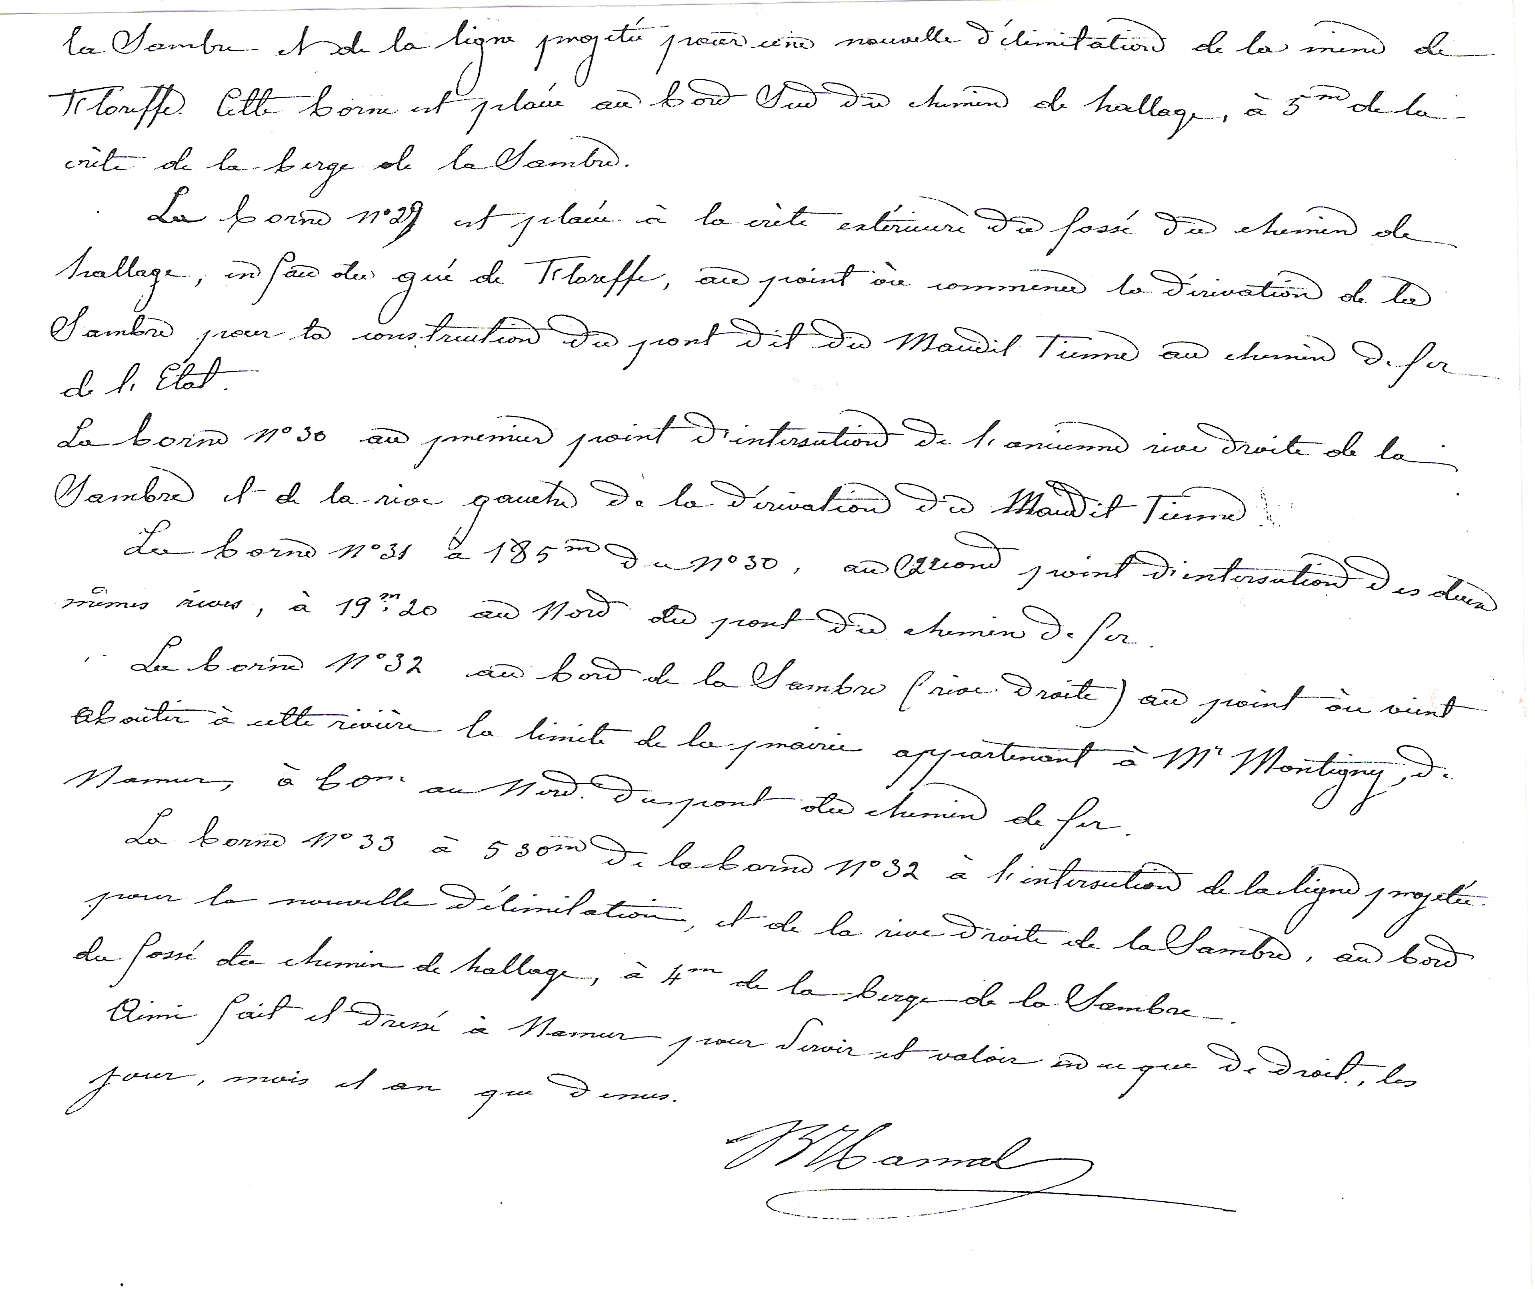 la Sambre et de la ligne projetée pour une nouvelle délimitation de la mine de
Floreffe. Cette borne est placée au bord Sud du chemin de hallage, à 5m de la
crête de la berge de la Sambre.
La borne n° 29 est placée à la crête extérieure du fossé du chemin de
hallage, en face du gué de Floreffe, au point où commence la dérivation de la
Sambre pour la construction du pont dit du Maudit Tienne au chemin de fer
de l'Etat.
La borne n° 30 au premier point d'intersection de l'ancienne rive droite de la
Sambre et de la rive gauche de la dérivation du Maudit Tienne
La borne n° 31 à 185m du n° 30, au second point d'intersection des deux
mêmes rives, à 19m,20 au Nord du pont du chemin de fer.
La borne N° 32 au bord de la Sambre (rive droite) au point où vient
aboutir à cette rivière la limite de la prairie appartenant à Mr Montigny, de
Namur, à 60m au Nord du pont du chemin de fer.
La borne N° 33 à 530m de la borne N° 32 à l'intersection de la ligne projetée
pour la nouvelle délimitation, et de la rive droite de la Sambre, au bord
du fossé du chemin de hallage, à 4m de la berge de la Sambre.
Ainsi fait et dressé à Namur pour servir et valoir en ce que de droit, les
jour, mois et an que dessus.
Hamal